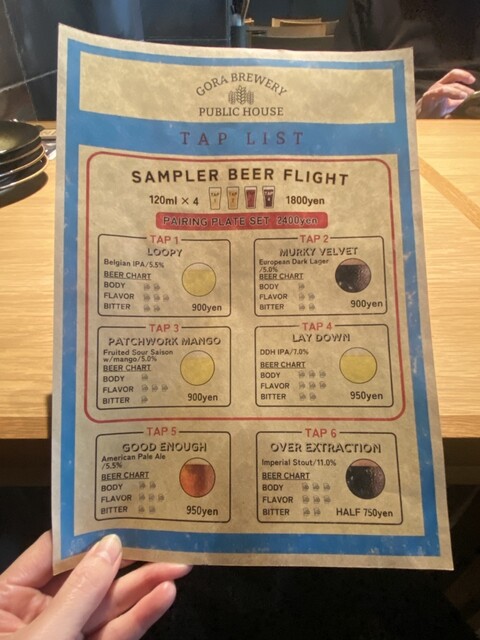 GORA BREWERY
PUBLIC HOUSE
TAP LIST
SAMPLER BEER FLIGHT
120ml × 4 1800yen
PAIRING PLATE SET 2400yen
TAP 1
LOOPY
Belgian IPA/5.5%
BEER CHART
BODY
FLAVOR
BITTER
900yen
TAP 2
MURKY VELVET
European Dark Lager
/5.0%
BEER CHART
BODY
FLAVOR
BITTER
900yen
TAP 3
PATCHWORK MANGO
Fruited Sour Saison
w/mango/5.0%
BEER CHART
BODY
FLAVOR
BITTER
900yen
TAP 4
LAY DOWN
DDH IPA/7.0%
BEER CHART
BODY
FLAVOR
BITTER
950yen
TAP 5
GOOD ENOUGH
American Pale Ale
/5.5%
BEER CHART
BODY
FLAVOR
BITTER
950yen
TAP 6
OVER EXTRACTION
Imperial Stout/11.0%
BEER CHART
BODY
FLAVOR
BITTER
HALF 750yen